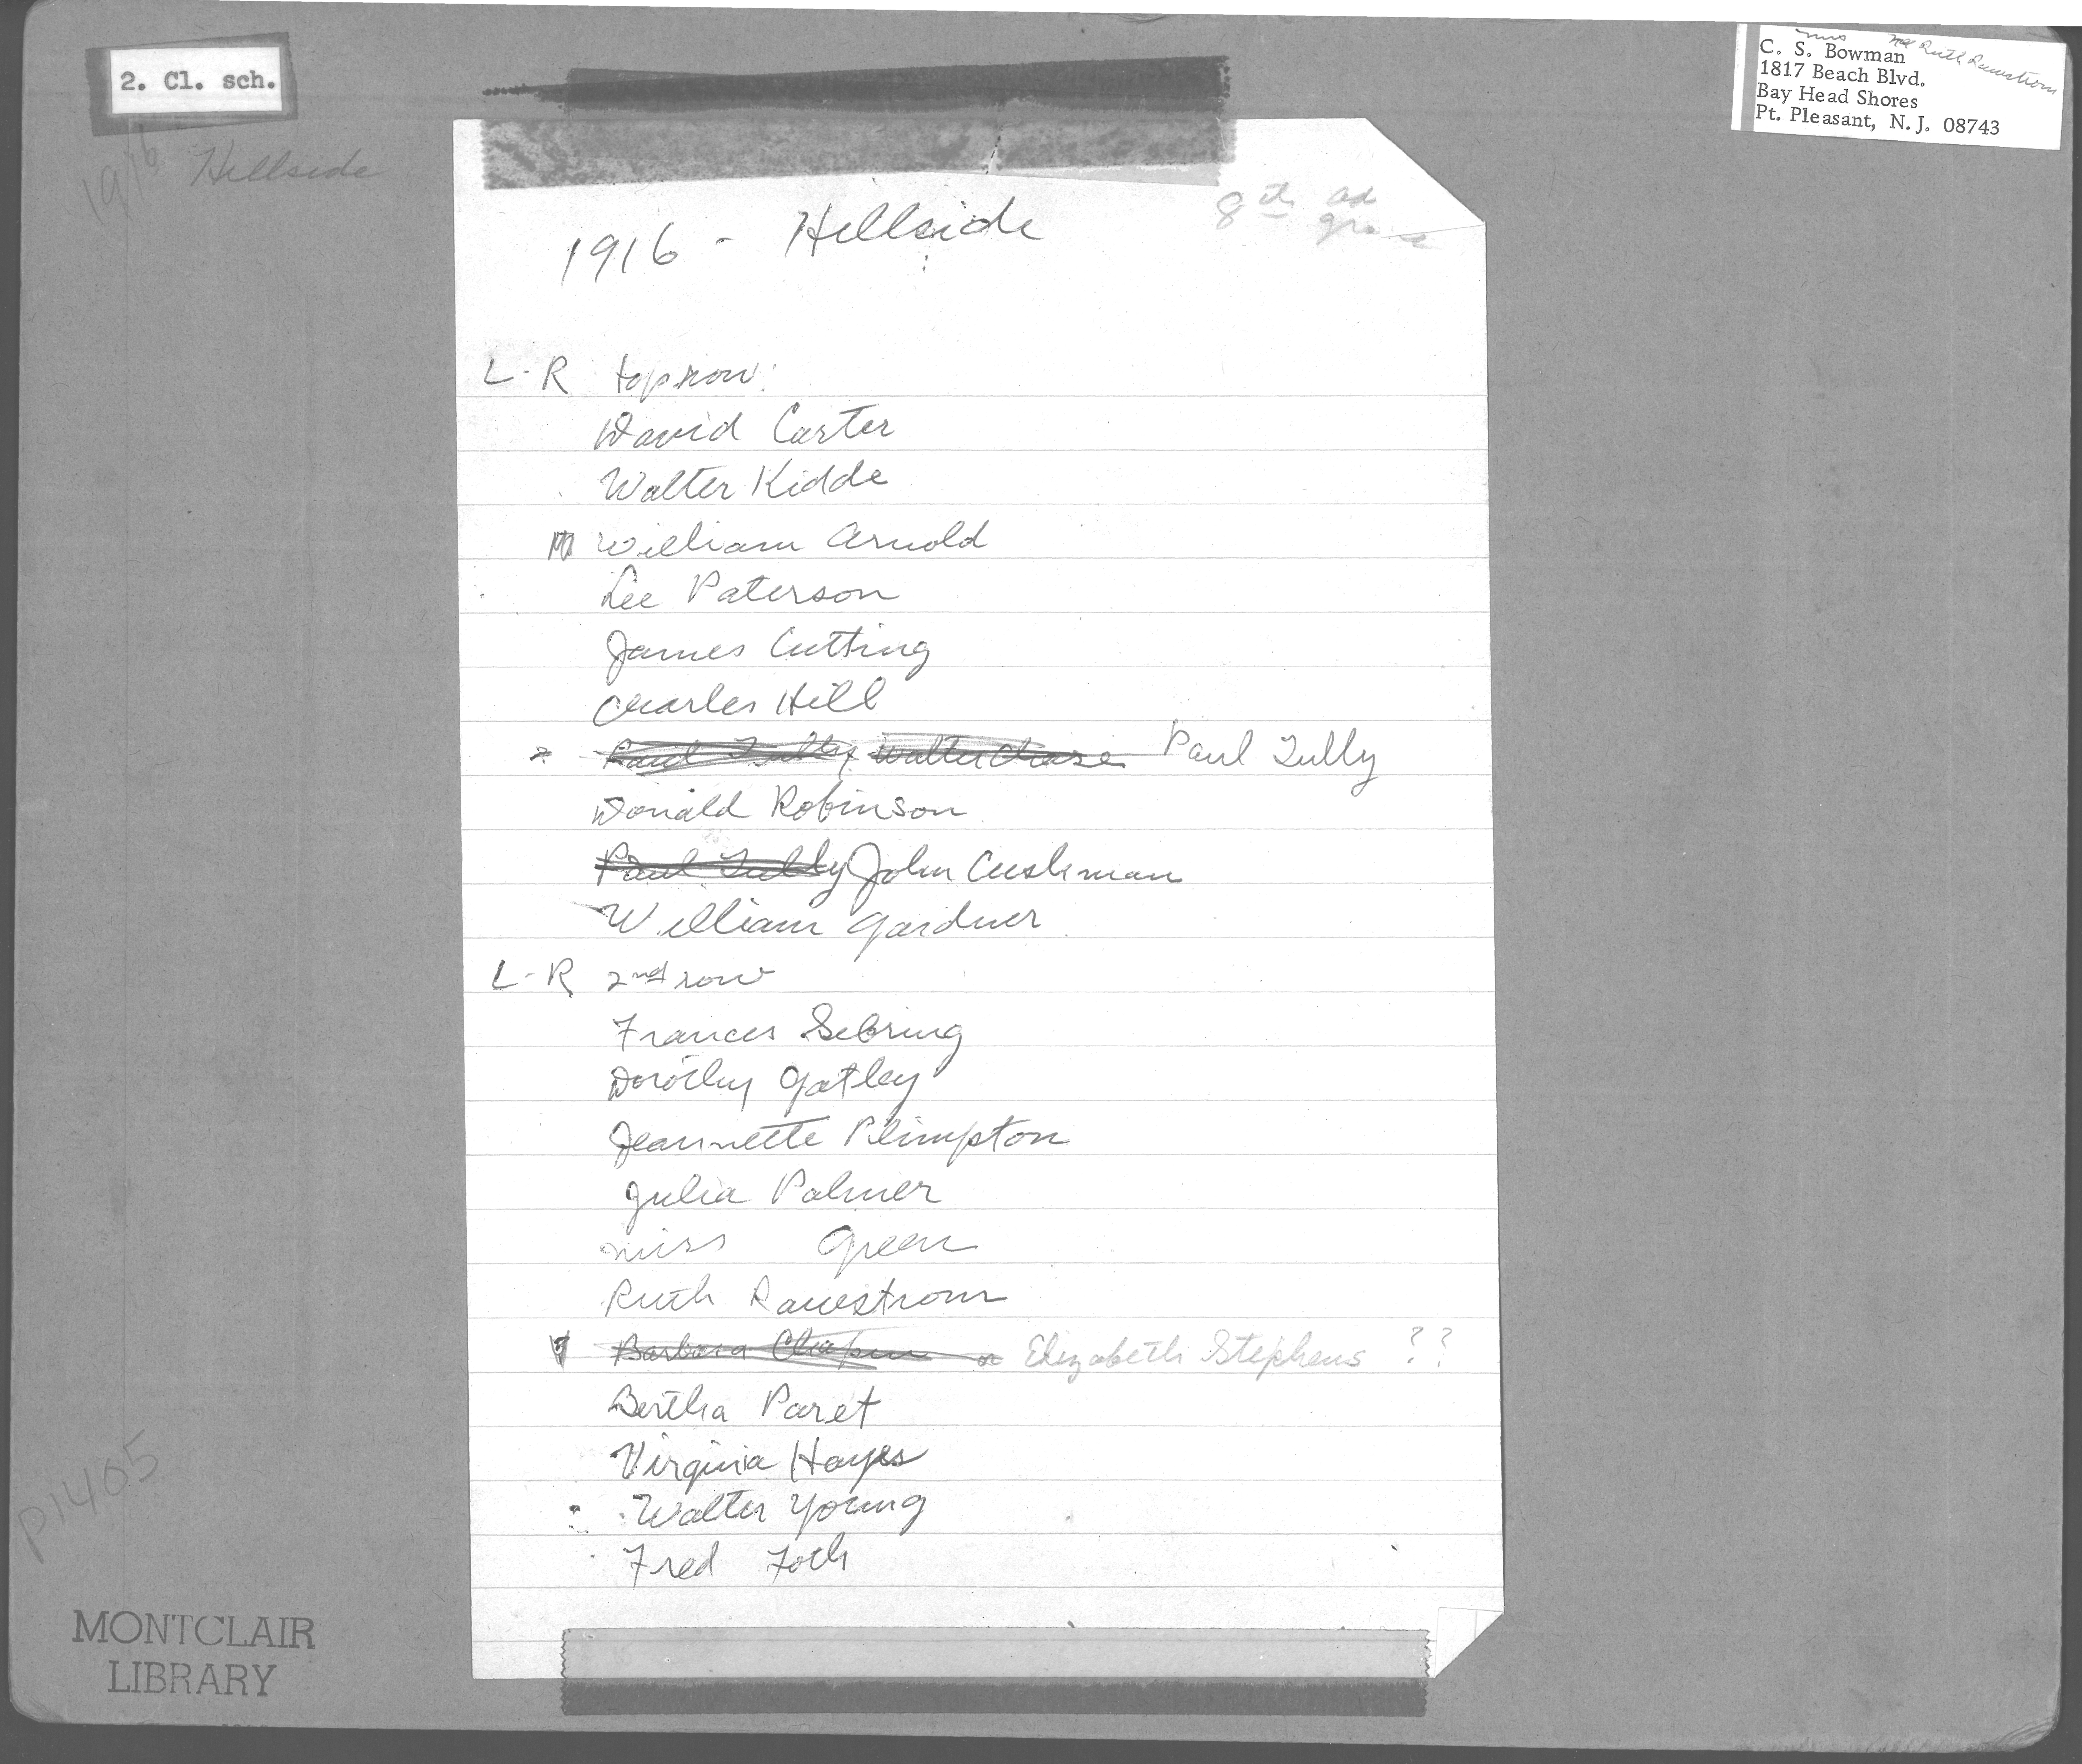 2. Cl. sch.
1916 Hillside
Mrs née Ruth Rawstrom
C. S. Bowman
1817 Beach Blvd.
Bay Head Shores
Pt. Pleasant, N. J. 08743
8th grade
1916 - Hillside
L-R top row:
David Carter
Walter Kidde
William Arnold
Lee Paterson
James Cutting
Charles Hill
Paul Tully Walter Chase Paul Tully
Donald Robinson
Paul Tully John Cushman
William Gardner
L-R 2nd row
Frances Sebring
Dorothy Gatley
Jeannette Plimpton
Julia Palmer
Miss Green
Ruth Rawstrom
Barbara Chapin or Elizabeth Stephens ??
Bertha Paret
Virginia Hayes
Walter Young
Fred Foth
P1405
MONTCLAIR
LIBRARY